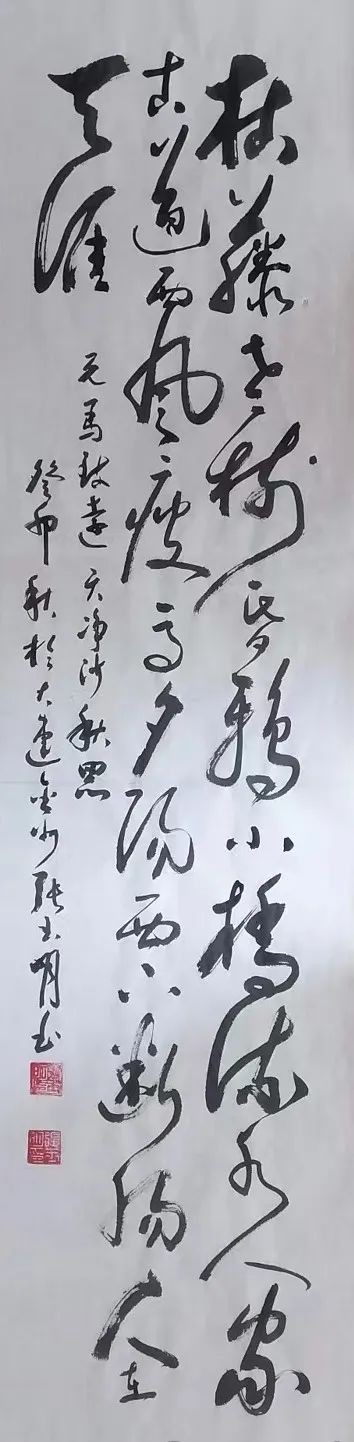 枯藤老树昏鸦小桥流水人家
古道西风瘦马夕阳西下断肠人在
天涯
元马致远天净沙秋思
癸卯秋于大连金州张玉明书